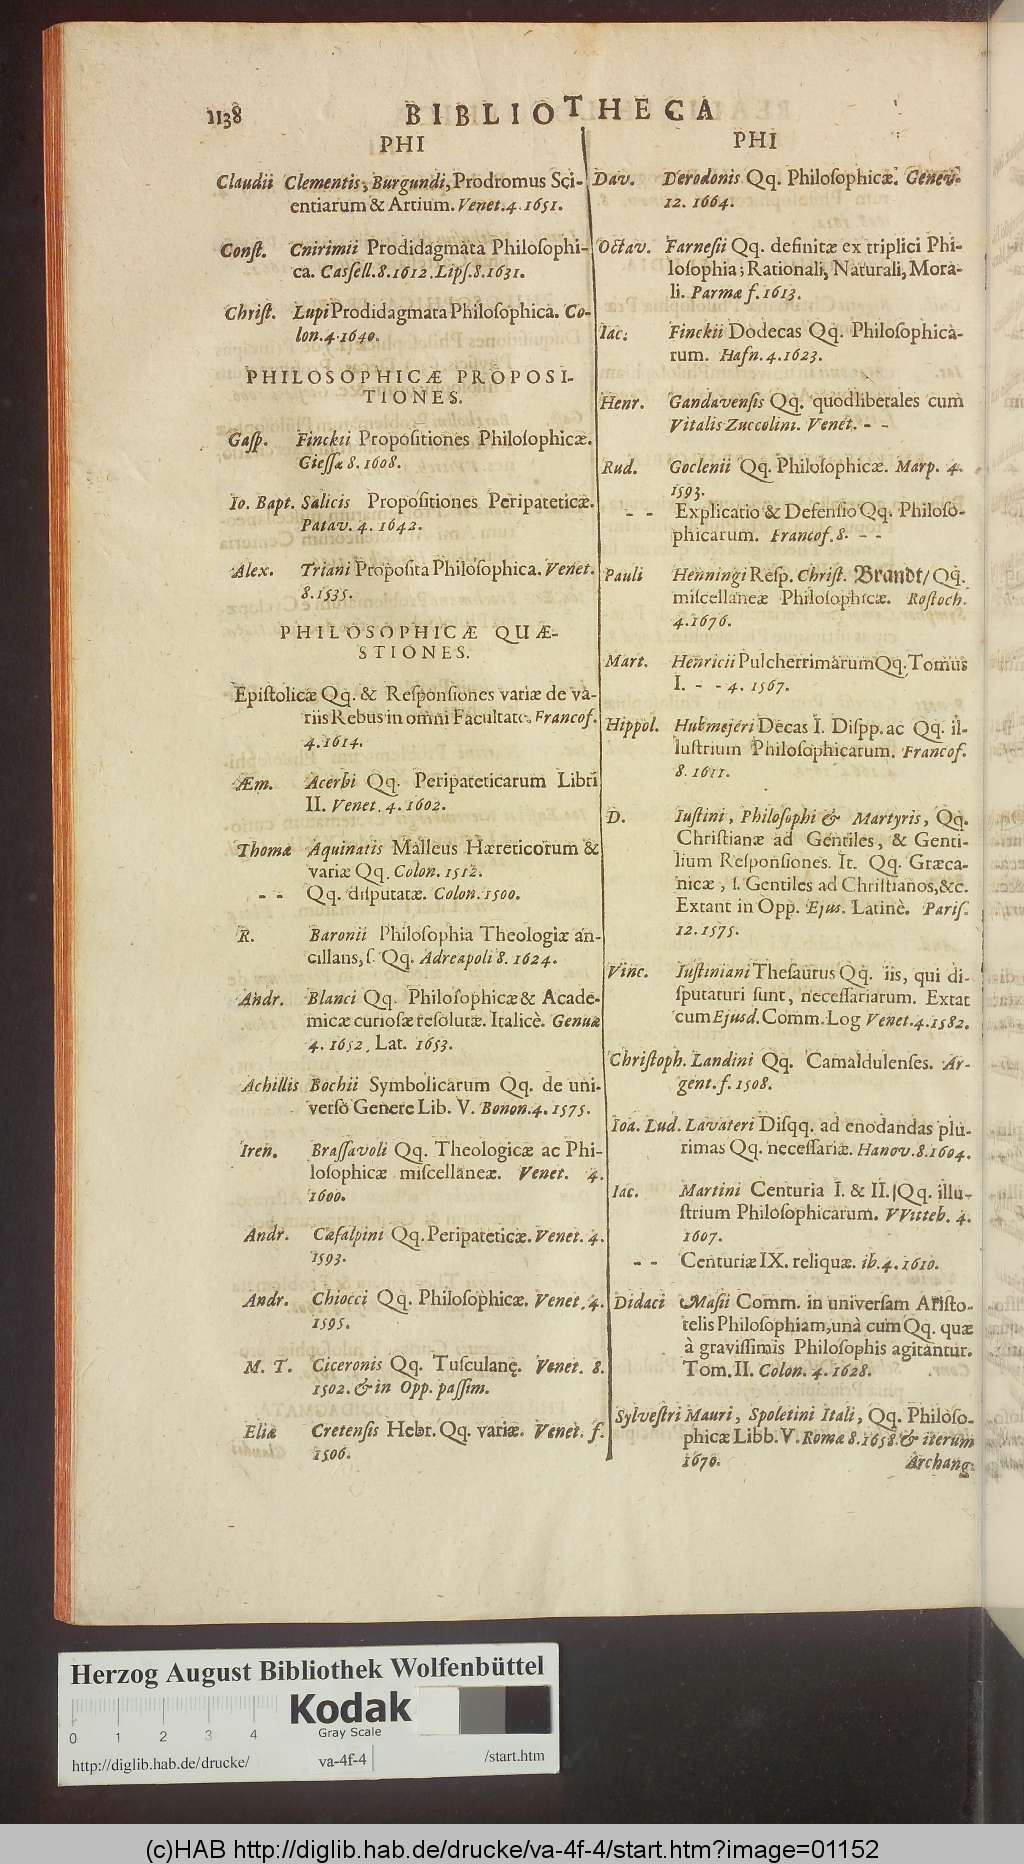 1138
BIBLIOTHECA
PHI
Claudii Clementis, Burgundi, Prodromus Sci-
entiarum & Artium. Venet. 4. 1651.
Const. Cnirimii Prodidagmata Philosophi-
ca. Cassell. 8. 1612. Lips. 8. 1631.
Christ. Lupi Prodidagmata Philosophica. Co-
lon. 4. 1640.
PHILOSOPHICÆ PROPOSI-
TIONES.
Gasp. Finckii Propositiones Philosophicæ.
Giessæ 8. 1608.
Io. Bapt. Salicis Propositiones Peripateticæ.
Patav. 4. 1642.
Alex. Triani Proposita Philosophica. Venet.
8. 1535.
PHILOSOPHICÆ QUÆ-
STIONES.
Epistolicæ Qq. & Responsiones variæ de va-
riis Rebus in omni Facultate. Francof.
4. 1614.
Æm. Acerbi Qq. Peripateticarum Libri
II. Venet. 4. 1602.
Thomæ Aquinatis Malleus Hæreticorum &
variæ Qq. Colon. 1512.
- - Qq. disputatæ. Colon. 1500.
R. Baronii Philosophia Theologiæ an-
cillans, s. Qq. Adreapoli 8. 1624.
Andr. Blanci Qq. Philosophicæ & Acade-
micæ curiosæ resolutæ. Italicè. Genuæ
4. 1652. Lat. 1653.
Achillis Bochii Symbolicarum Qq. de uni-
verso Genere Lib. V. Bonon. 4. 1575.
Iren. Brassavoli Qq. Theologicæ ac Phi-
losophicæ miscellaneæ. Venet. 4.
1600.
Andr. Cæsalpini Qq. Peripateticæ. Venet. 4.
1593.
Andr. Chiocci Qq. Philosophicæ. Venet. 4.
1595.
M. T. Ciceronis Qq. Tusculanę. Venet. 8.
1502. & in Opp. passim.
Eliæ Cretensis Hebr. Qq. variæ. Venet. f.
1506.
PHI
Dav. Derodonis Qq. Philosophicæ. Genev.
12. 1664.
Octav. Farnesii Qq. definitæ ex triplici Phi-
losophia; Rationali, Naturali, Mora-
li. Parmæ f. 1613.
Iac. Finckii Dodecas Qq. Philosophica-
rum. Hafn. 4. 1623.
Henr. Gandavensis Qq. quodlibetales cum
Vitalis Zuccolini. Venet. - -
Rud. Goclenii Qq. Philosophicæ. Marp. 4.
1593.
- - Explicatio & Defensio Qq. Philoso-
phicarum. Francof. 8. - -
Pauli Henningi Resp. Christ. Brandt/ Qq.
miscellaneæ Philosophicæ. Rostoch.
4. 1676.
Mart. Henricii Pulcherrimarum Qq. Tomus
I. - - 4. 1567.
Hippol. Hubmejeri Decas I. Dispp. ac Qq. il-
lustrium Philosophicarum. Francof.
8. 1611.
D. Iustini, Philosophi & Martyris, Qq.
Christianæ ad Gentiles, & Genti-
lium Responsiones. It. Qq. Græca-
nicæ, s. Gentiles ad Christianos, &c.
Extant in Opp. Ejus. Latinè. Paris.
12. 1575.
Vinc. Iustiniani Thesaurus Qq. iis, qui di-
sputaturi sunt, necessariarum. Extat
cum Ejusd. Comm. Log Venet. 4. 1582.
Christoph. Landini Qq. Camaldulenses. Ar-
gent. f. 1508.
Ioa. Lud. Lavateri Disqq. ad enodandas plu-
rimas Qq. necessariæ. Hanov. 8. 1604.
Iac. Martini Centuria I. & II. Qq. illu-
strium Philosophicarum. VVitteb. 4.
1607.
- - Centuriæ IX. reliquæ. ib. 4. 1610.
Didaci Masii Comm. in universam Aristo-
telis Philosophiam, unà cum Qq. quæ
à gravissimis Philosophis agitantur.
Tom. II. Colon. 4. 1628.
Sylvestri Mauri, Spoletini Itali, Qq. Philoso-
phicæ Libb. V. Romæ 8. 1658. & iterum
1670.
Archang.
Herzog August Bibliothek Wolfenbüttel
Kodak
Gray Scale
0 1 2 3 4
http://diglib.hab.de/drucke/ va-4f-4 /start.htm
(c)HAB http://diglib.hab.de/drucke/va-4f-4/start.htm?image=01152